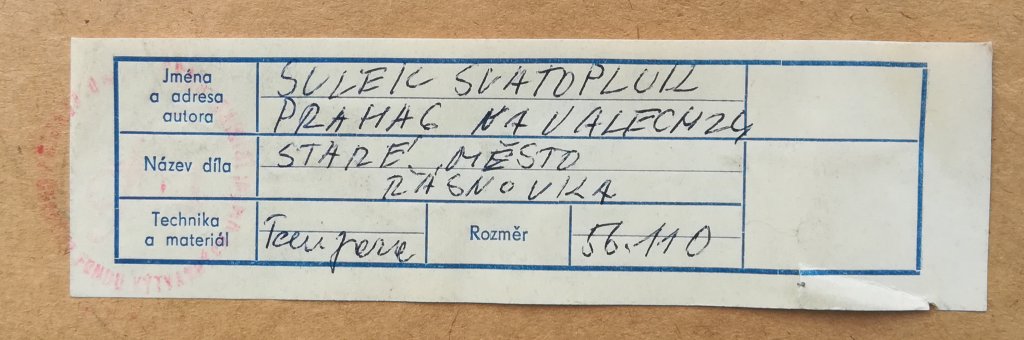 Jména a adresa autora
SULEK SVATOPLUK
PRAHA 6 NA VALECH 24
Název díla
STARÉ MĚSTO
ŘÁSNOVKA
Technika a materiál
Tempera
Rozměr
56.110
FONDU VÝTVA